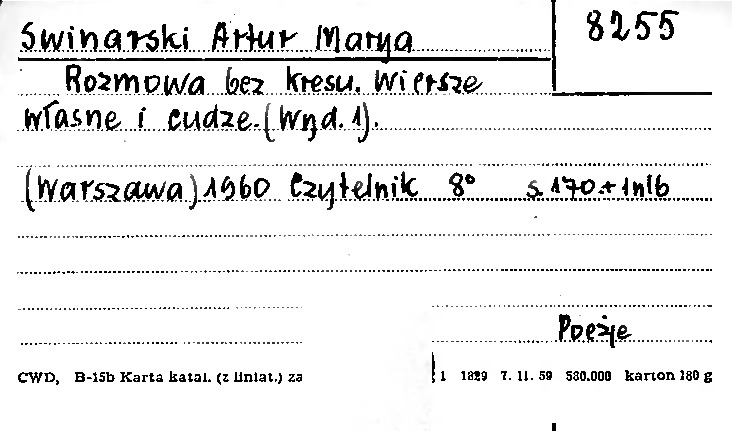 Swinarski Artur Marya
8255
Rozmowa bez kresu. Wiersze
własne i cudze. (Wyd. 1).
(Warszawa) 1960 Czytelnik 8° s. 170 + 1nlb
Poezje
CWD, B-15b Karta katal. (z liniat.) za
1 1829 7. 11. 59 580.000 karton 180 g